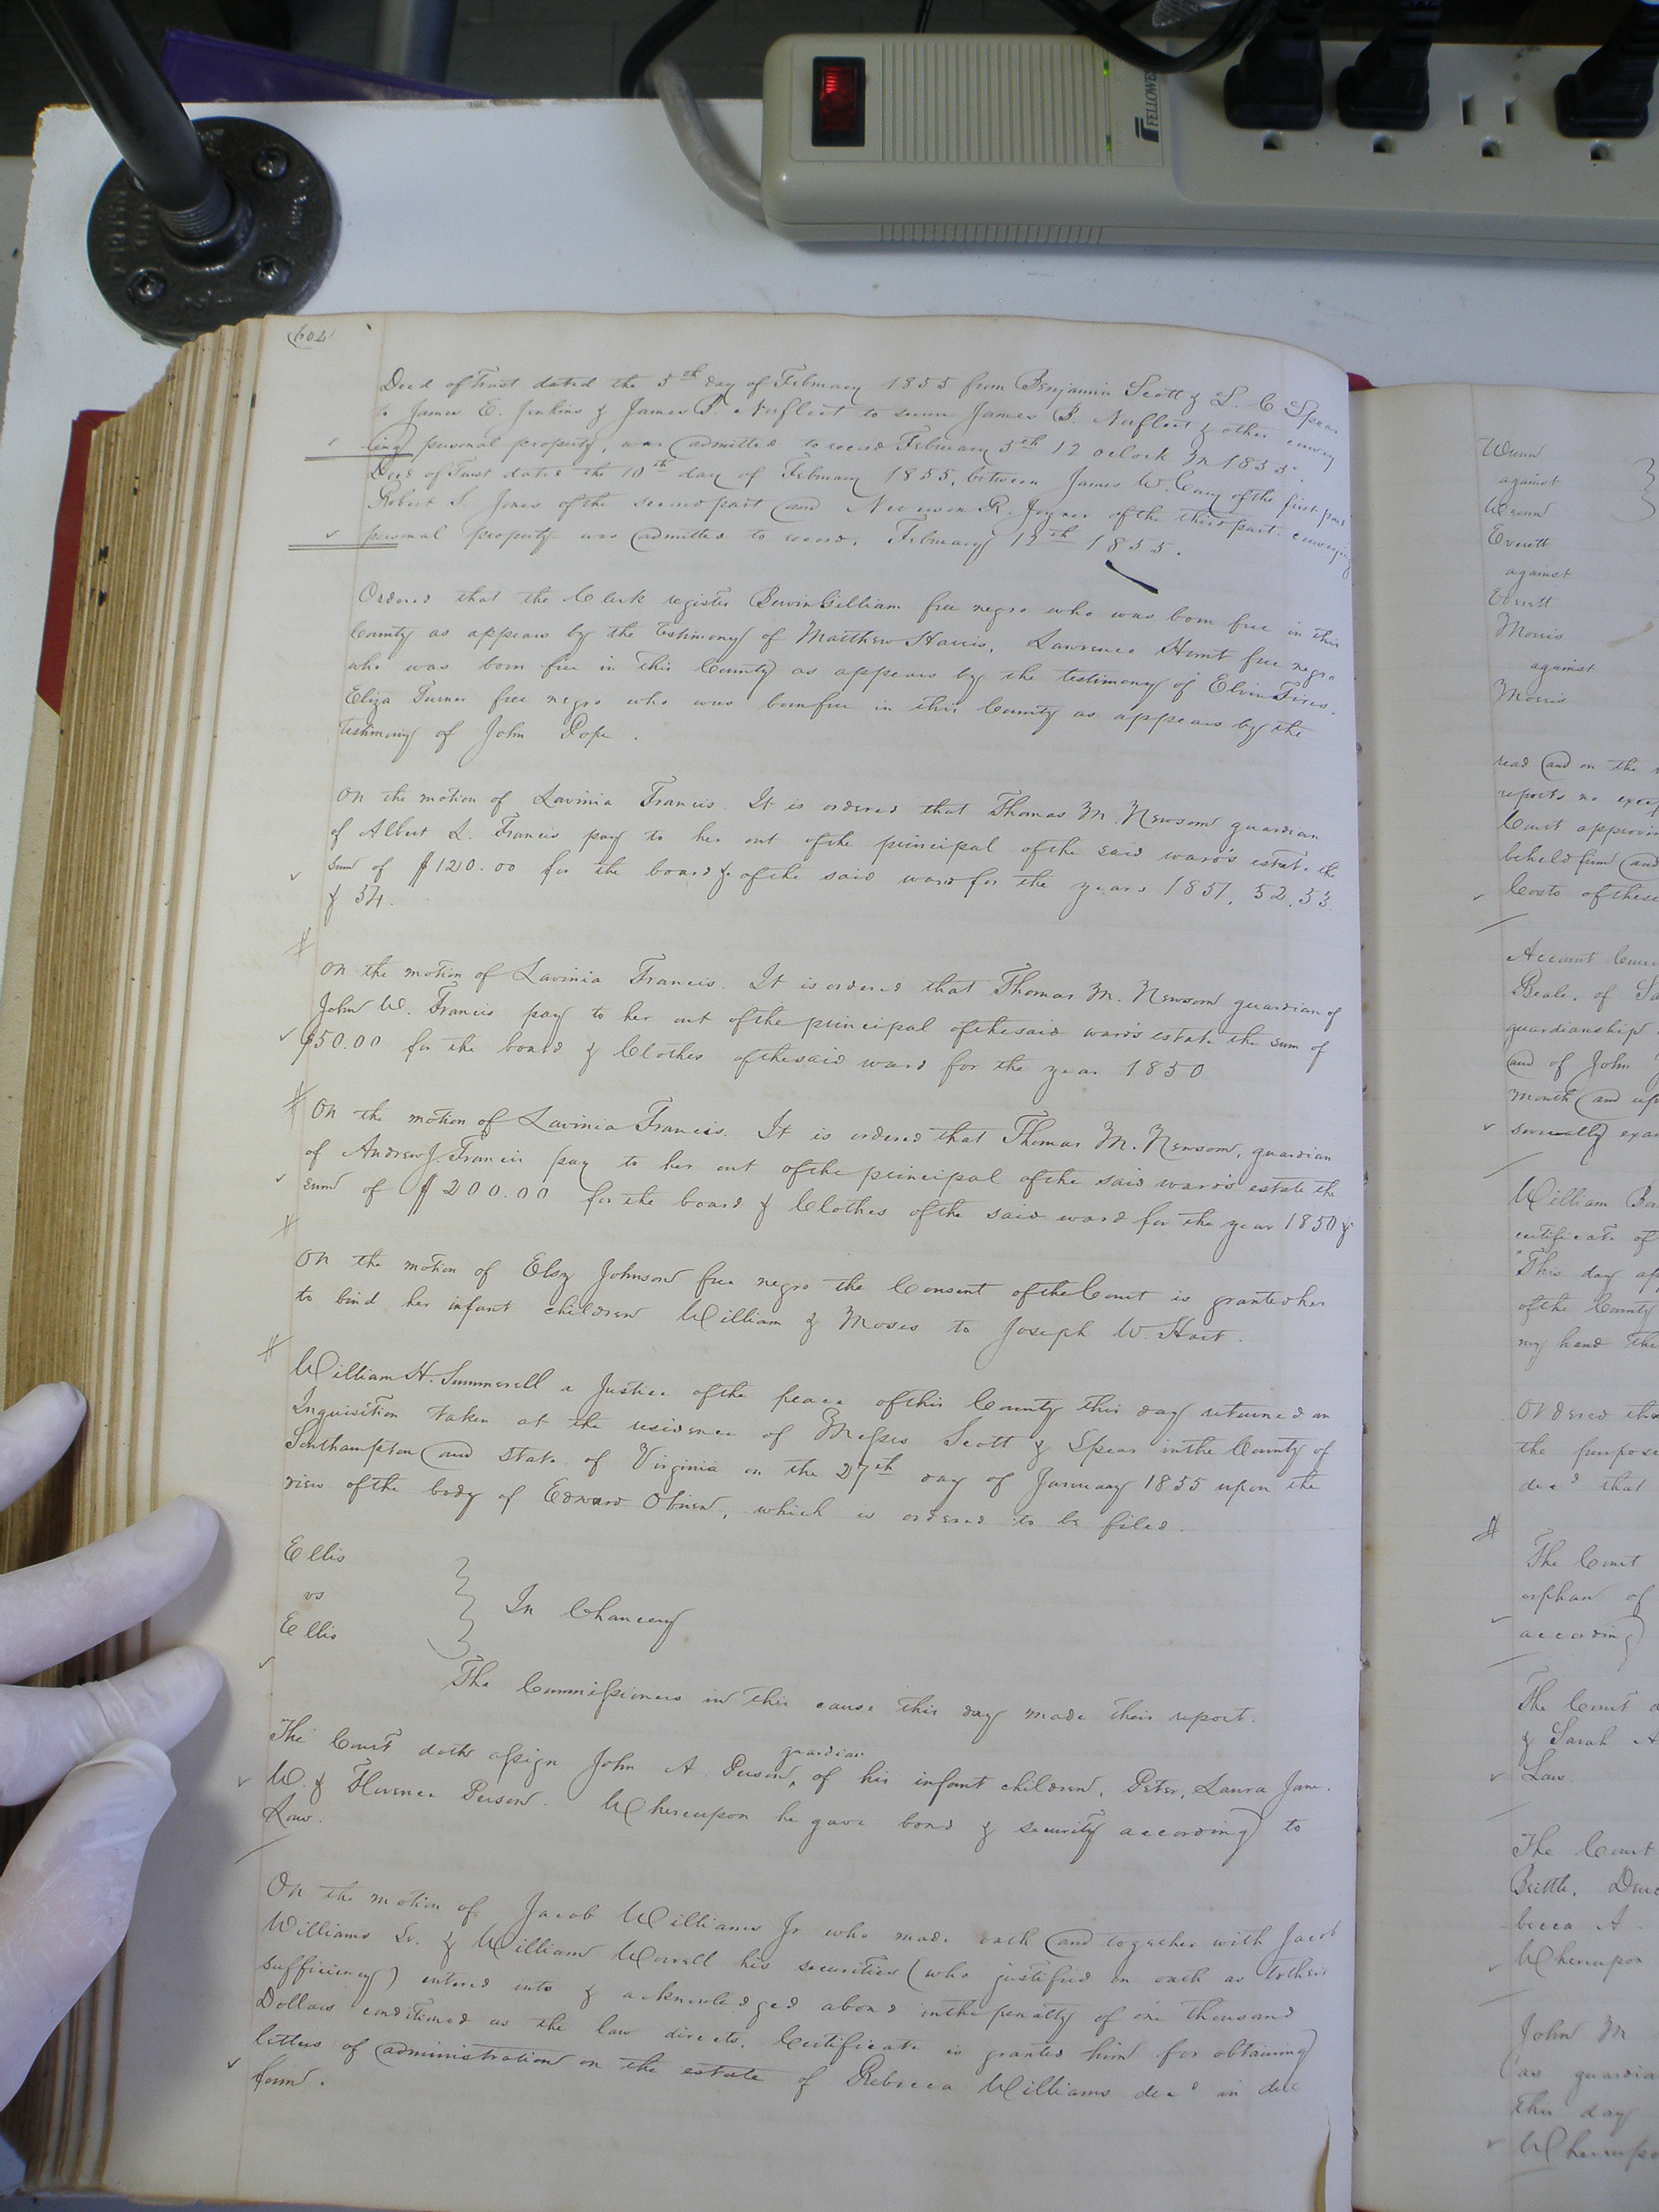 FELLOWES
604
Deed of Trust dated the 5th day of February 1855 from Benjamin Scott & L. C. Spear
to James E. Jenkins & James B. Norfleet to secure James B. Norfleet & other convey
ing personal property, was admitted to record February 5th 12 oclock M 1855.
Deed of Trust dated the 10th day of February 1855, between James W. Cary of the first part
Robert S. Jones of the second part and Newsom R. Joyner of the third part. conveying
personal property was admitted to record, February 12th 1855.
Ordered that the Clerk register Gilliam free negro who was born free in this
County as appears by the Testimony of Matthew Harris, Lawrence Hunt free negro
who was born free in this County as appears by the testimony of Elvin
Eliza Turner free negro who was born free in this County as appears by the
testimony of John Pope.
On the motion of Lavinia Francis. It is ordered that Thomas M. Newsom guardian
of Albert L. Francis pay to her out of the principal of the said ward's estate the
sum of $120.00 for the board & of the said ward for the years 1851, 52, 53
& 54.
On the motion of Lavinia Francis. It is ordered that Thomas M. Newsom guardian of
John W. Francis pay to her out of the principal of the said ward's estate the sum of
$50.00 for the board & Clothes of the said ward for the year 1850
On the motion of Lavinia Francis. It is ordered that Thomas M. Newsom, guardian
of Andrew J. Francis pay to her out of the principal of the said ward's estate the
sum of $200.00 for the board & Clothes of the said ward for the year 1850 &
On the motion of Elsy Johnson free negro the Consent of the Court is granted her
to bind her infant children William & Moses to Joseph W. Hart.
William H. Summerell a Justice of the peace of this County this day returned an
Inquisition taken at the residence of Messrs Scott & Spear in the County of
Southampton and State of Virginia on the 27th day of January 1855 upon the
view of the body of Edward Obrien, which is ordered to be filed.
Ellis
vs
Ellis
In Chancery
The Commissioners in this cause this day made their report.
guardian
The Court doth assign John A. Person, of his infant children, Peter, Laura Jane.
W. & Florence Person. Whereupon he gave bond & security according to
Law.
On the motion of Jacob Williams Jr who made oath and together with Jacob
Williams Sr. & William Worrell his securities (who justified on oath as to their
sufficiency) entered into & acknowledged a bond in the penalty of one thousand
Dollars conditioned as the law directs, Certificate is granted him for obtaining
letters of administration on the estate of Rebecca Williams decd in due
form.
against
Everett
against
Everett
Morris
against
Morris
read and on the
reports no
Court
beheld firm and
Costs of these
Account
Beale, of
guardianship
and of John
month and
severally
William
certificate of
This day
of the County
my hand the
Ordered
the purpose
decd that
The Court
orphan of
according
The Court
& Sarah A
Law.
The Court
Brittle,
becca A.
Whereupon
John M
(as
this day